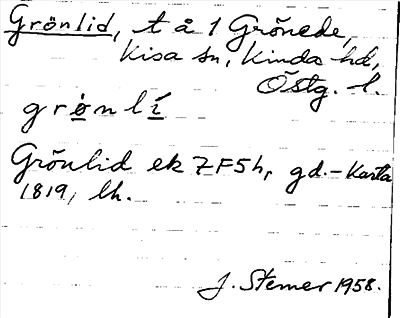 Grönlid, t å 1 Grönede,
Kisa sn, Kinda hd,
Östg. l.
grø̣nlí̱
Grönlid ek 7F5h, gd. – Karta
1819, lh.
J. Stemer 1958.